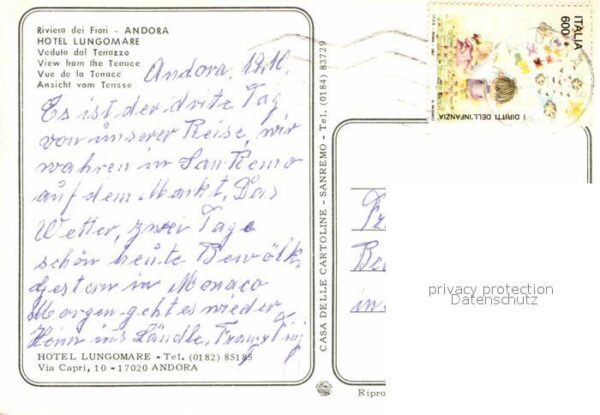 Riviera dei Fiori - ANDORA
HOTEL LUNGOMARE
Veduta dal Terrazzo
View from the Terrace
Vue de la Terrace
Ansicht vom Terasse
Andora, 12.10.
Es ist der dritte Tag
von unserer Reise, wir
wahren in San Remo
auf dem Markt, Das
Wetter, zwei Tage
schön heute Bewölk.
Gestern in Monaco
Morgen geht es wieder
Heim ins Ländle,
HOTEL LUNGOMARE - Tel. (0182) 85185
Via Capri, 10 - 17020 ANDORA
CASA DELLE CARTOLINE - SANREMO - Tel. (0184) 83729
ITALIA
600
I DIRITTI DELL'INFANZIA
Fr
Be
in
privacy protection
Datenschutz
Ripro